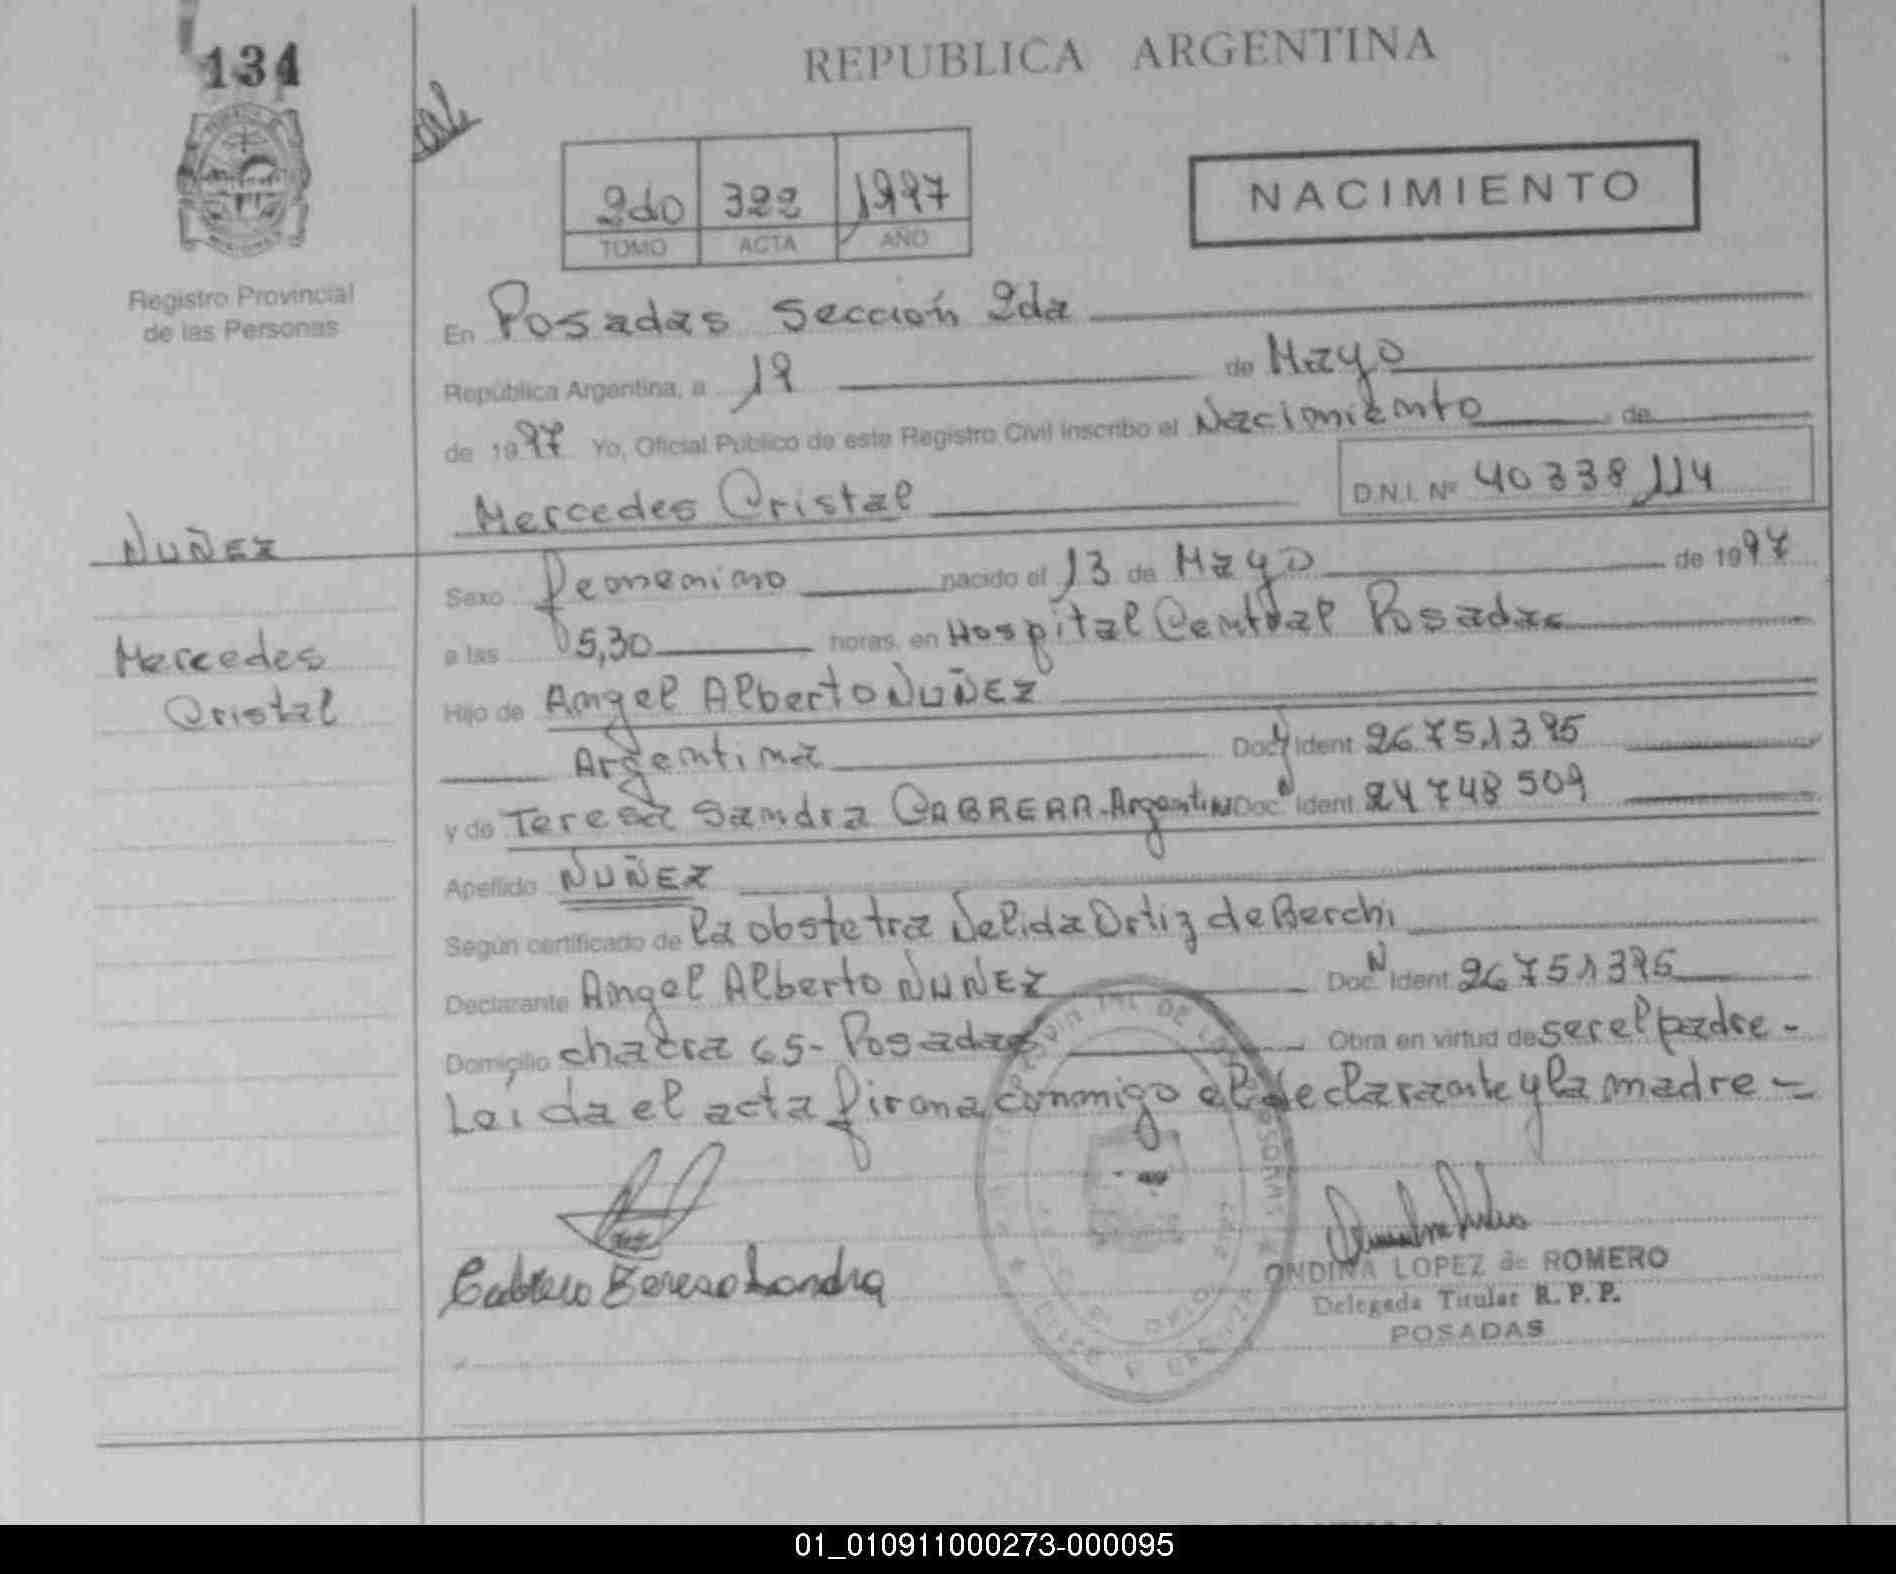 134
REPUBLICA ARGENTINA
2do 322 1997
TOMO ACTA AÑO
NACIMIENTO
Registro Provincial
de las Personas
En Posadas Sección 2da
República Argentina, a 19 de Mayo
de 1997 Yo, Oficial Público de este Registro Civil inscribo el Nacimiento de
Mercedes Cristal D.N.I. Nº 40338114
NUÑEZ
Mercedes
Cristal
Sexo femenino nacido el 13 de Mayo de 1997
a las 05,30 horas, en Hospital Central Posadas
Hijo de Angel Alberto NUÑEZ
Argentina Doc Ident 26751395
y de Teresa Sandra CABRERA-Argentina Doc Ident 24748509
Apellido NUÑEZ
Según certificado de la obstetra Nelida Ortiz de Berchi
Declarante Angel Alberto NUÑEZ Doc N Ident 26751395
Domicilio chacra 65- Posadas Obra en virtud de ser el padre -
Leída el acta firma conmigo el declarante y la madre =
Cabrera Teresa Sandra
ONDINA LOPEZ de ROMERO
Delegada Titular R. P. P.
POSADAS
01_010911000273-000095